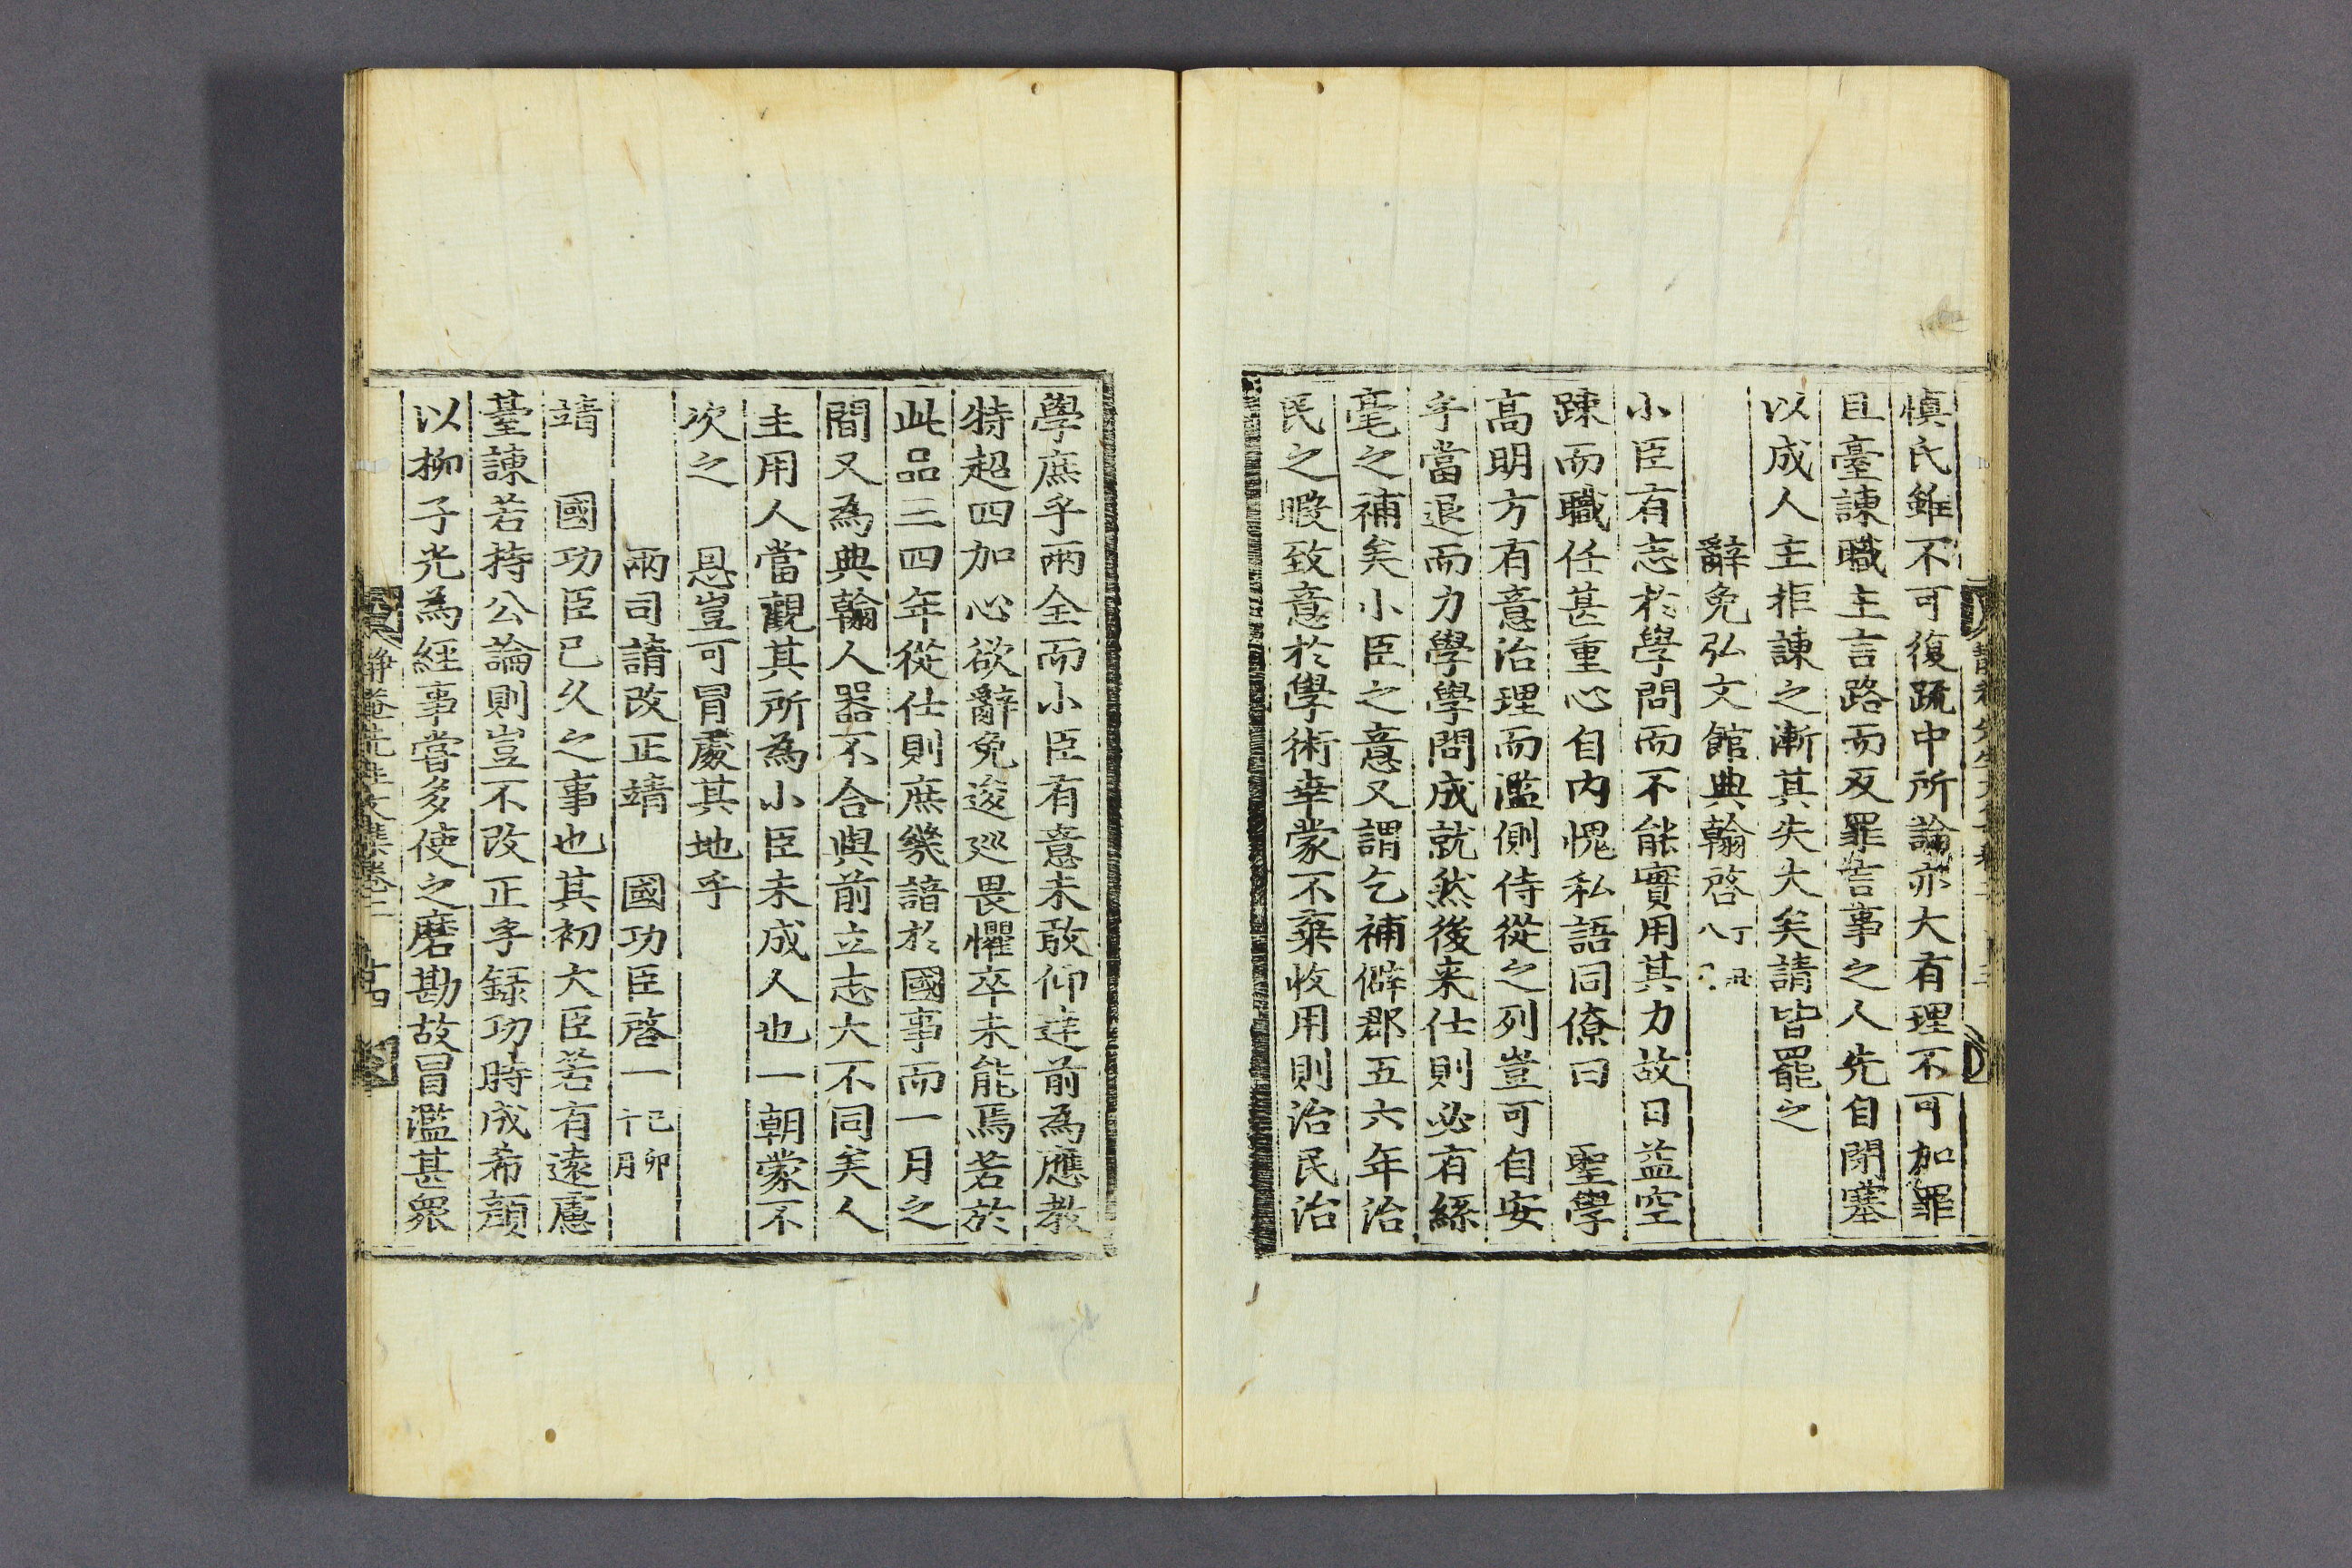 愼氏雖不可復疏中所論亦大有理不可加罪
且臺諫職主言路而反罪言事之人先自閉塞
以成人主拒諫之漸其失大矣請皆罷之
辭免弘文館典翰啓 丁丑八
小臣有志於學問而不能實用其力故日益空
踈而職任甚重心自内愧私語同僚曰 聖學
高明方有意治理而濫側侍從之列豈可自安
乎當退而力學學問成就然後来仕則必有絲
毫之補矣小臣之意又謂乞補僻郡五六年治
民之暇致意於學術幸蒙不棄收用則治民治
學庶乎兩全而小臣有意未敢仰達前為應教
特超四加心欲辭免逡廵畏懼卒未能焉若於
此品三四年從仕則庶幾諳於國事而一月之
間又為典翰人器不合與前立志大不同矣人
主用人當觀其所為小臣未成人也一朝蒙不
次之 恩豈可冒處其地乎
兩司請改正靖 國功臣啓一 己卯十月
靖 國功臣已久之事也其初大臣若有遠慮
臺諫若持公論則豈不改正乎録功時成希顔
以柳子光為經事嘗多使之磨勘故冒濫甚衆
靜菴先生文集卷二 十四